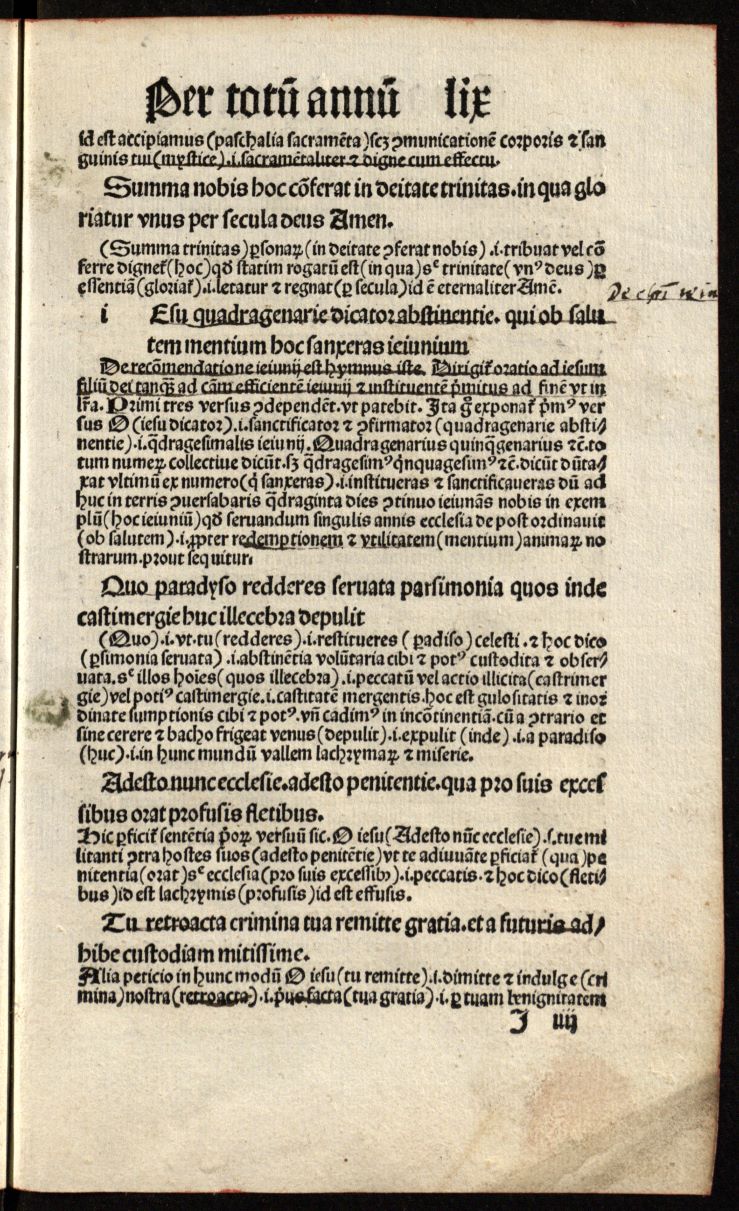 Per totū annū lix
id est accipiamus (paschalia sacramēta) scȝ ꝯmunicationē corporis ⁊ san
guinis tui (mystice) .i. sacramētaliter ⁊ digne cum effectu.
Summa nobis hoc cōferat in deitate trinitas. in qua glo
riatur vnus per secula deus Amen.
(Summa trinitas) ꝑsonaꝝ (in deitate ꝯferat nobis) .i. tribuat vel cō
ferre dignet᷑ (hoc) qđ statim rogatū est (in qua) sᶜ trinitate (vnꝰ deus) ꝑ
essentiā (gloriat᷑) .i. letatur ⁊ regnat (ꝑ secula) id ē eternaliter Amē.
i Esu quadragenarie dicator abstinentie. qui ob salu
tem mentium hoc sanxeras ieiunium
De recōmendatione ieiunij est hymnus iste. Dirigit᷑ oratio ad iesum
filiū dei tanqȝ ad cām efficientē ieiunij ⁊ instituentē p̄mitus ad finē vt in
lr̄a. Primi tres versus ꝯdependēt. vt patebit. Ita gͦ exponat᷑ p̄mꝰ ver
sus O (iesu dicator) .i. sanctificator ⁊ ꝯfirmator (quadragenarie absti/
nentie) .i. q̄dragesimalis ieiunij. Quadragenarius quinq̄genarius ⁊c̄. to
tum numeꝝ collectiue dicūt. sȝ q̄dragesimꝰ q̄nquagesimꝰ ⁊c̄. dicūt dūta/
xat vltimū ex numero (q̄ sanxeras) .i. institueras ⁊ sanctificaueras dū ad
huc in terris ꝯuersabaris q̄draginta dies ꝯtinuo ieiunās nobis in exem
plū (hoc ieiuniū) qđ seruandum singulis annis ecclesia de post ordinauit
(ob salutem) .i. ꝓpter redemptionem ⁊ vtilitatem (mentium) animaꝝ no
strarum. prout sequitur.
Quo paradyso redderes seruata parsimonia quos inde
castimergie huc illecebra depulit
(Quo) .i. vt. tu (redderes) .i. restitueres (ꝑadiso) celesti. ⁊ hoc dico
(ꝑsimonia seruata) .i. abstinētia volūtaria cibi ⁊ potꝰ custodita ⁊ obser/
uata. sᶜ illos hoīes (quos illecebra) .i. peccatū vel actio illicita (castrimer
gie) vel potiꝰ castimergie. i. castitatē mergentis. hoc est gulositatis ⁊ inor
dinate sumptionis cibi ⁊ potꝰ. vn̄ cadimꝰ in incōtinentiā. cū a ꝯtrario et
sine cerere ⁊ bacho frigeat venus (depulit) .i. expulit (inde) .i. a paradiso
(huc) .i. in hunc mundū vallem lachrymaꝝ ⁊ miserie.
Adesto nunc ecclesie. adesto penitentie. qua pro suis excef
sibus orat profusis fletibus.
Hic ꝑficit᷑ sentētia p̄oꝝ versuū sic. O iesu (Adesto nūc ecclesie) .s. tue mi
litanti ꝯtra hostes suos (adesto penitētie) vt te adiuuāte ꝑficiat᷑ (qua) pe
nitentia (orat) sᶜ ecclesia (pro suis excessibȝ) .i. peccatis. ⁊ hoc dico (fleti/
bus) id est lachrymis (profusis) id est effusis.
Tu retroacta crimina tua remitte gratia. et a futuris ad/
hibe custodiam mitissime.
Alia peticio in hunc modū O iesu (tu remitte) .i. dimitte ⁊ indulge (cri
mina) nostra (retroacta) .i. p̄us facta (tua gratia) .i. ꝑ tuam benignitatem
I iiij